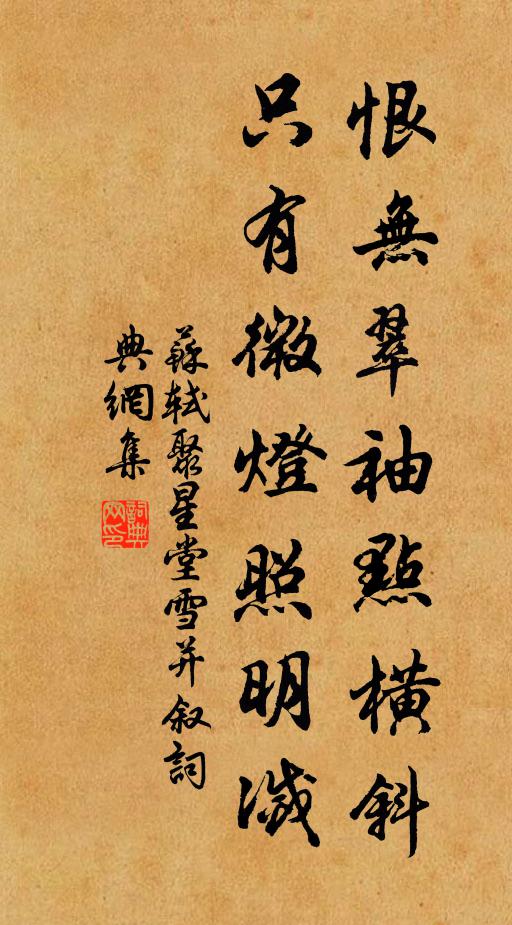 恨無翠袖點橫斜
只有微燈照明滅
蘇軾聚星堂雪并叙詞
典網集
詞典網印